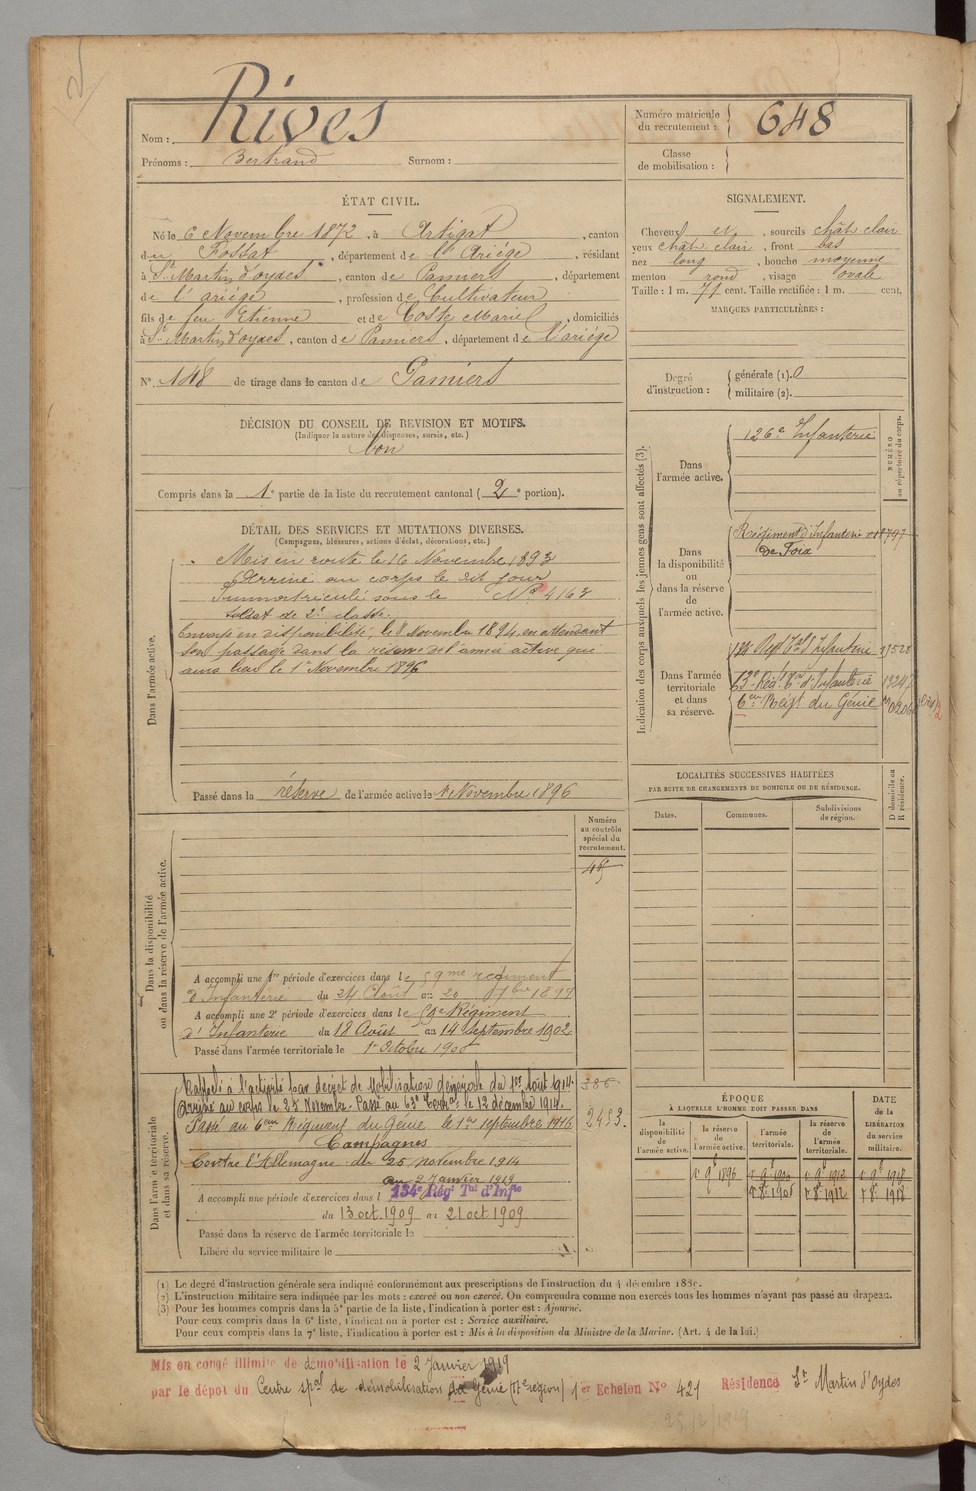 Nom : Rives
Prénoms : Bertrand Surnom :
Numéro matricule du recrutement : 648
Classe de mobilisation :
ÉTAT CIVIL.
Né le 6 Novembre 1872, à Artigat, canton
du Fossat, département de l'Ariége, résidant
à St Martin d'oydes, canton de Pamiers, département
de l'ariége, profession de Cultivateur
fils de feu Etienne et de Coste Marie, domiciliés
à St Martin d'oydes, canton de Pamiers, département de l'ariége
N° 148 de tirage dans le canton de Pamiers
SIGNALEMENT.
Cheveux et, sourcils chât clair
yeux chât. clair, front bas
nez long, bouche moyenne
menton rond, visage ovale
Taille : 1 m. 71 cent. Taille rectifiée : 1 m. cent.
MARQUES PARTICULIÈRES :
Degré d'instruction : générale (1). 0
militaire (2).
DÉCISION DU CONSEIL DE REVISION ET MOTIFS.
(Indiquer la nature des dispenses, sursis, etc.)
bon
Compris dans la 1e partie de la liste du recrutement cantonal (2e portion).
DÉTAIL DES SERVICES ET MUTATIONS DIVERSES.
(Campagnes, blessures, actions d'éclat, décorations, etc.)
Dans l'armée active.
Mis en route le 16 Novembre 1893
Arrivé au corps le dit jour
Immatriculé sous le N° 4163
soldat de 2e classe.
Envoyé en disponibilité, le 8 Novembre 1894, en attendant
son passage dans la réserve de l'armée active qui
aura lieu le 1er Novembre 1896
Passé dans la réserve de l'armée active le 1 Novembre 1896
Indication des corps auxquels les jeunes gens sont affectés (3).
NUMÉRO au répertoire du corps.
Dans l'armée active.
126e Infanterie
Dans la disponibilité ou dans la réserve de l'armée active.
Régiment d'Infanterie
de Foix
Dans l'armée territoriale et dans sa réserve.
134 Régt Tal d'Infanterie
63e Régt Tal d'Infanterie
6em Régt du Génie
LOCALITÉS SUCCESSIVES HABITÉES
PAR SUITE DE CHANGEMENTS DE DOMICILE OU DE RÉSIDENCE.
Dates. Communes. Subdivisions de région. D domicile ou R résidence.
Numéro au contrôle spécial du recrutement.
Dans la disponibilité ou dans la réserve de l'armée active.
A accompli une 1re période d'exercices dans le 59me régiment
d'Infanterie du 24 Août au 20 7bre 1899
A accompli une 2e période d'exercices dans le 59e Régiment
d'Infanterie du 18 Août au 14 Septembre 1902
Passé dans l'armée territoriale le 1er Octobre 1906
Dans l'armée territoriale et dans sa réserve.
Rappelé à l'activité par décret de Mobilisation générale du 1er Août 1914.
Arrivé au corps le 25 Novembre. Passé au 63e Terral le 12 décembre 1914.
Passé au 6em Régiment du Génie le 1er septembre 1916
Campagnes
Contre l'Allemagne du 25 novembre 1914
au 2 Janvier 1919
A accompli une période d'exercices dans l 134e Régt Tal d'Infie
du 13 oct. 1909 au 21 oct 1909
Passé dans la réserve de l'armée territoriale le
Libéré du service militaire le
386
2493.
ÉPOQUE
À LAQUELLE L'HOMME DOIT PASSER DANS
DATE de la LIBÉRATION du service militaire.
la disponibilité de l'armée active. la réserve de l'armée active. l'armée territoriale. la réserve de l'armée territoriale.
(1) Le degré d'instruction générale sera indiqué conformément aux prescriptions de l'instruction du 4 décembre 1889.
(2) L'instruction militaire sera indiquée par les mots : exercé ou non exercé. On comprendra comme non exercés tous les hommes n'ayant pas passé au drapeau.
(3) Pour les hommes compris dans la 5e partie de la liste, l'indication à porter est : Ajourné.
Pour ceux compris dans la 6e liste, l'indication à porter est : Service auxiliaire.
Pour ceux compris dans la 7e liste, l'indication à porter est : Mis à la disposition du Ministre de la Marine. (Art. 4 de la loi.)
Mis en congé illimité de démobilisation le 2 Janvier 1919
par le dépôt du Centre spal de démobilisation du Génie (17e région) 1er Echelon N° 421 Résidence St Martin d'Oydes
25/2/1919